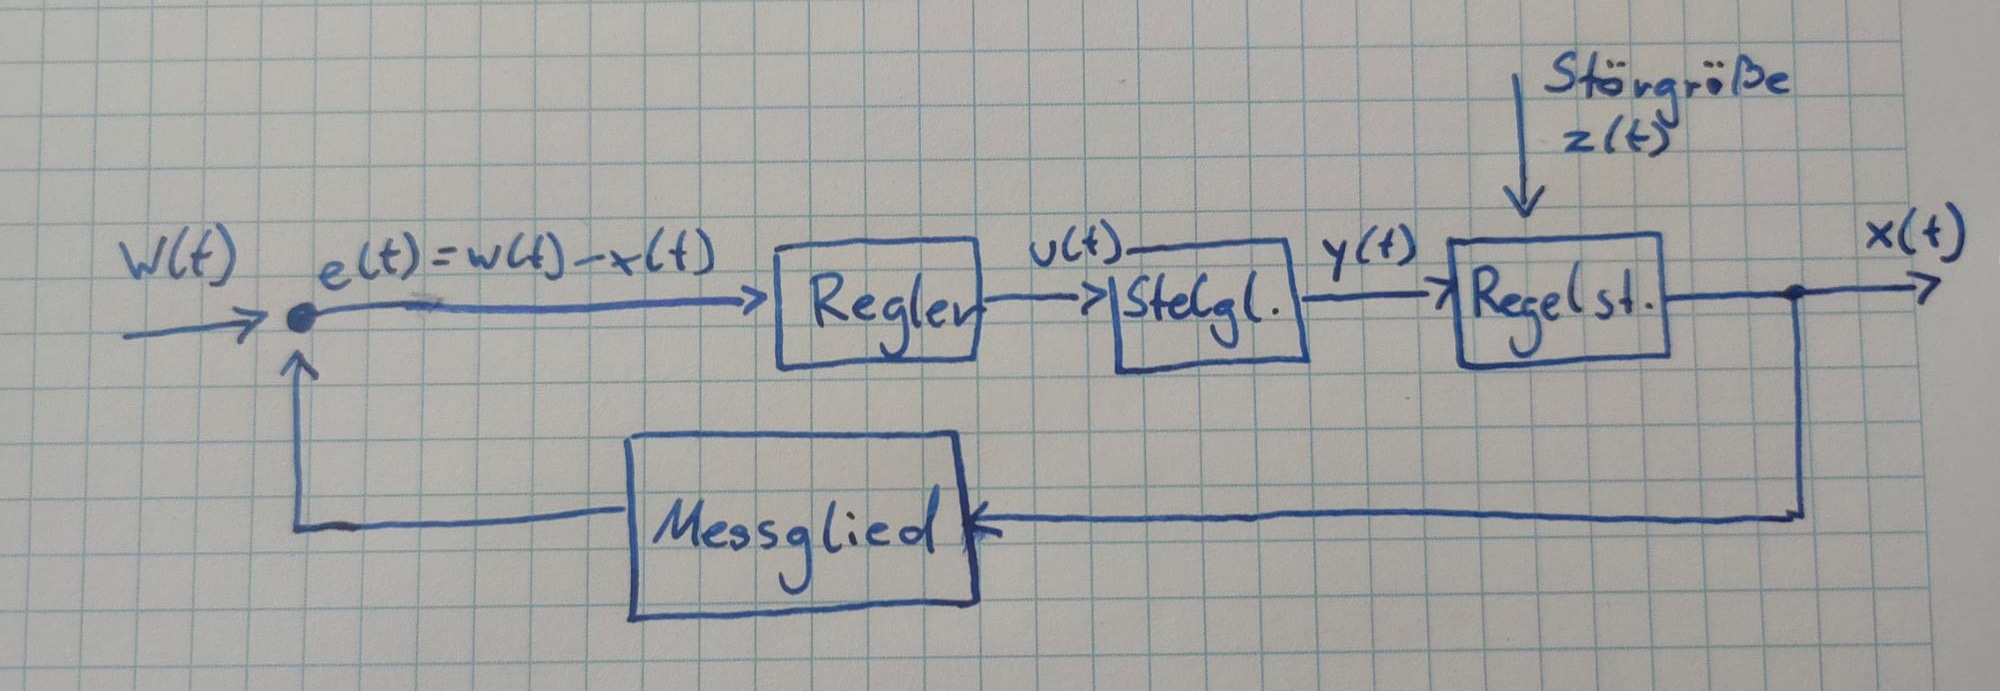 Störgröße
z(t)
W(t)
e(t)=w(t)-x(t)
Regler
u(t)
Stellgl.
y(t)
Regelst.
x(t)
Messglied